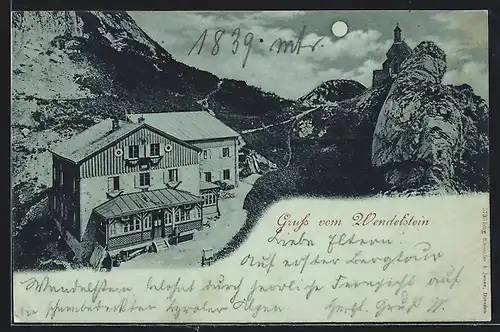 1839. mtr.
Gruß vom Wendelstein
Liebe Eltern.
Auf erster Bergtour
Wendelstein belohnt durch herrliche Fernsicht auf
die schneebedeckten Tyroler Alpen
Herzl. Gruß W.